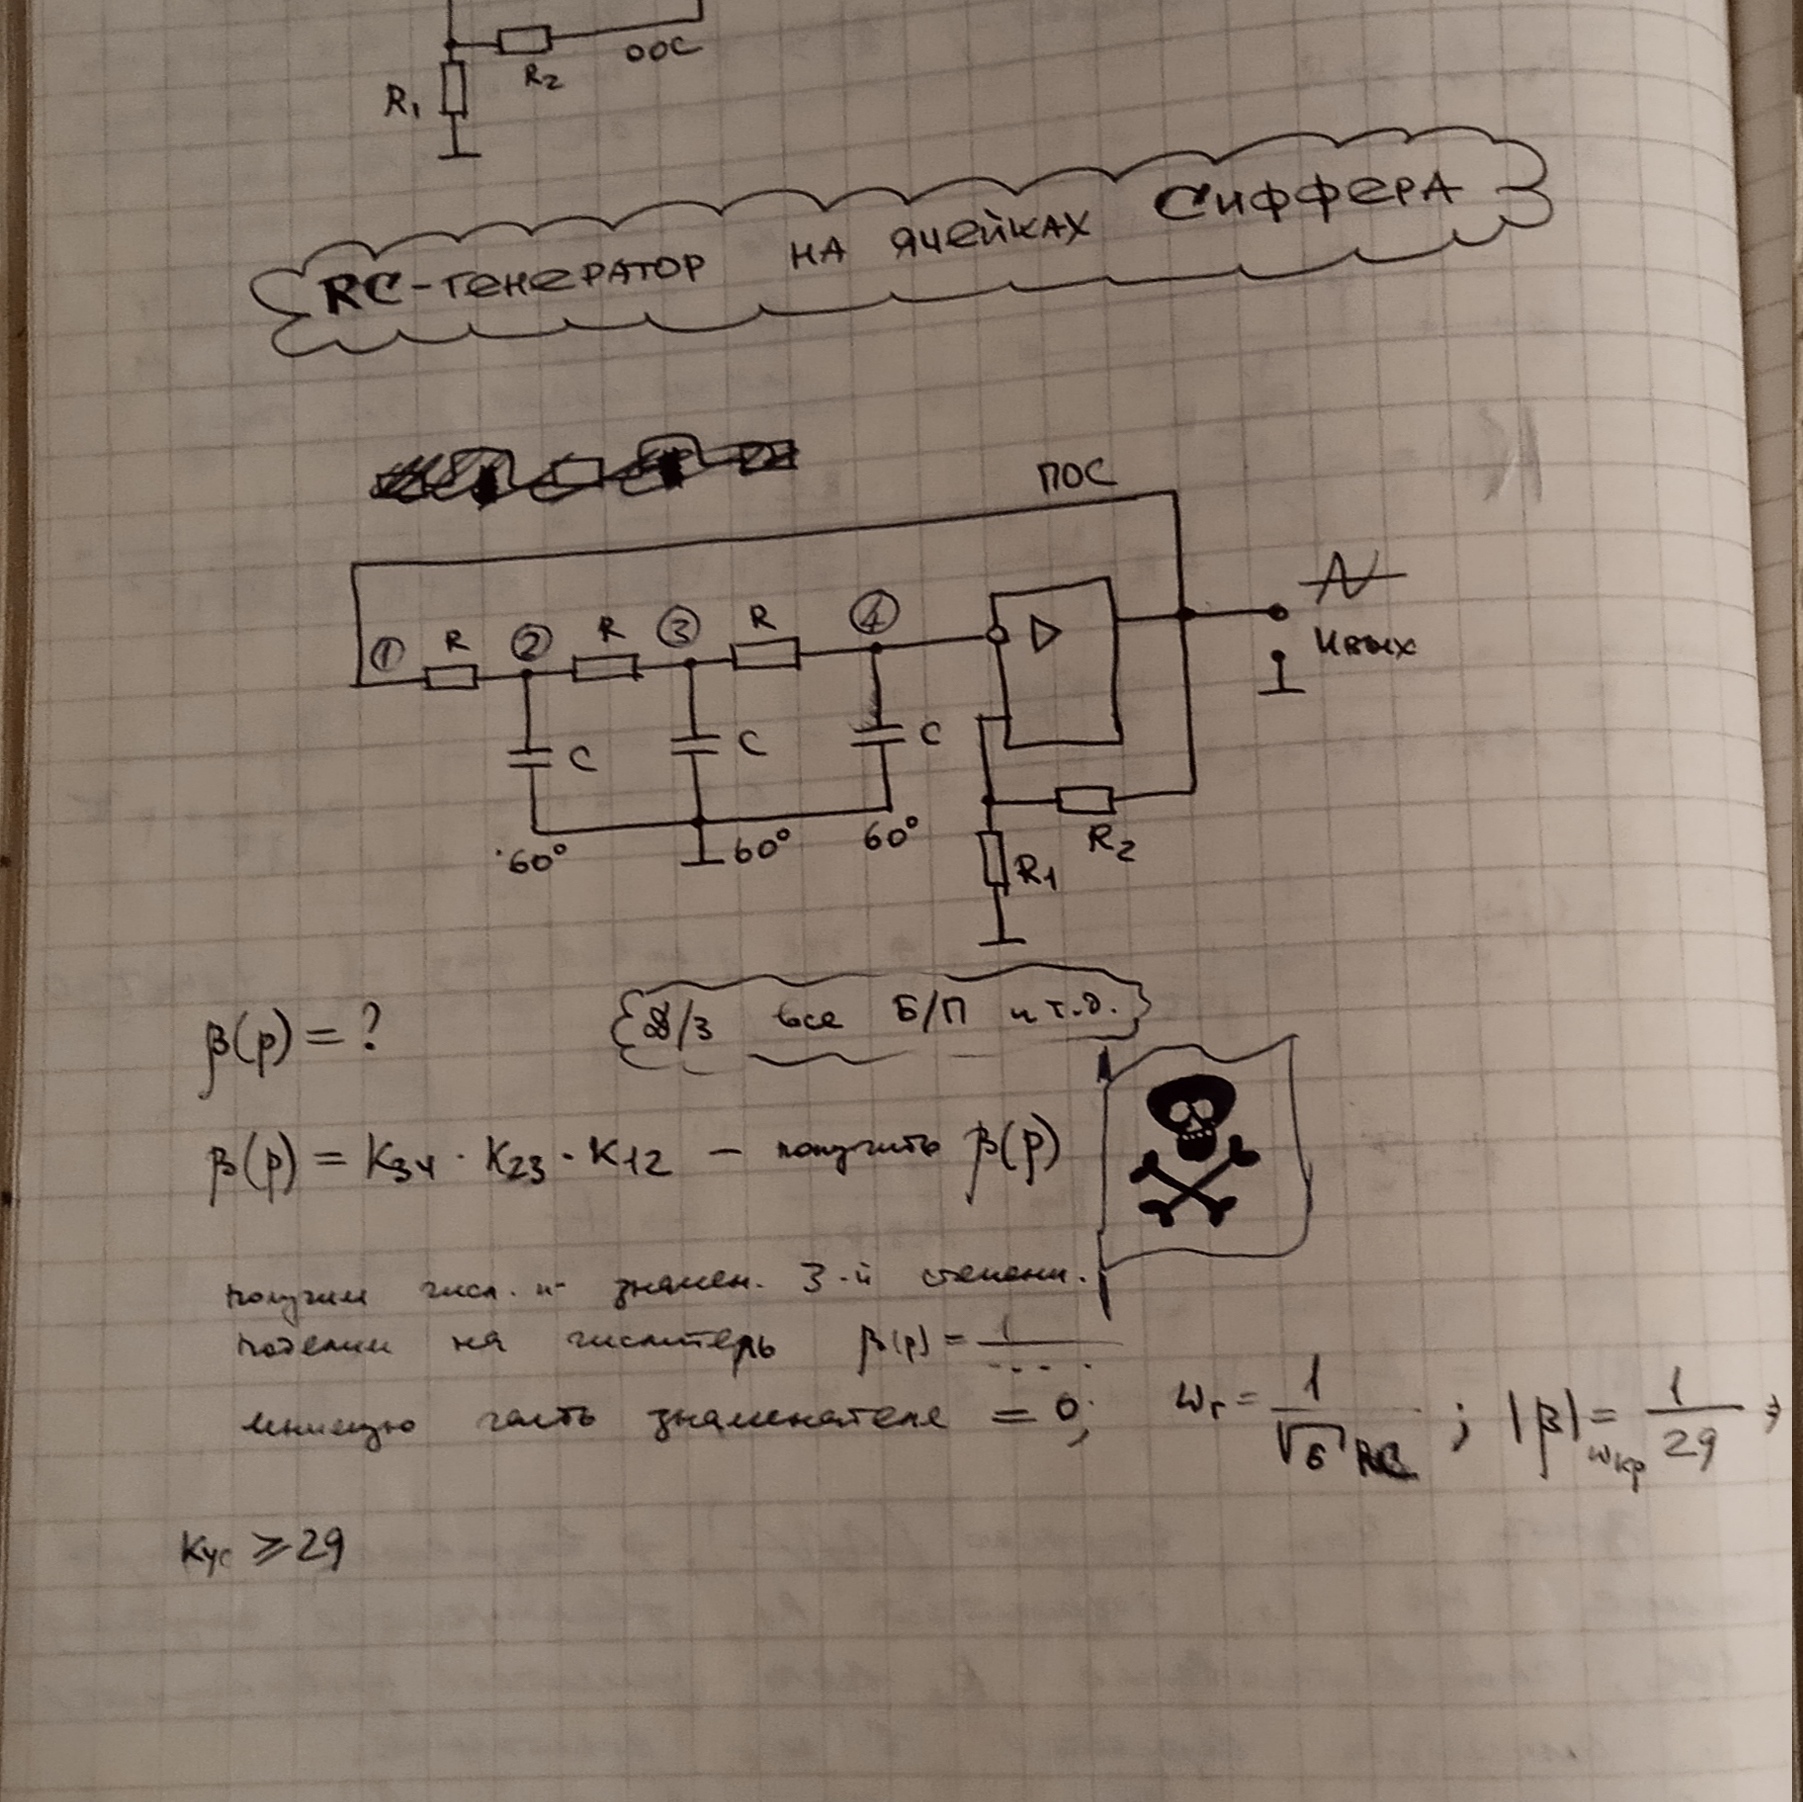 R₂
ООС
R₁
RC-генератор на ячейках Сиффера
ПОС
① R ② R ③ R ④
Uвых
C C C
60° 60° 60°
R₂
R₁
β(p) = ?
Д/З все Б/П и т.д.
β(p) = K₃₄ · K₂₃ · K₁₂ – получить β(p)
получим числ. и знамен. 3-й степени.
поделим на числитель β(p) = 1/....
мнимую часть знаменателя = 0; ωг = 1/√6 RC ; |β|ωкр = 1/29 ⇒
Kус ≥ 29